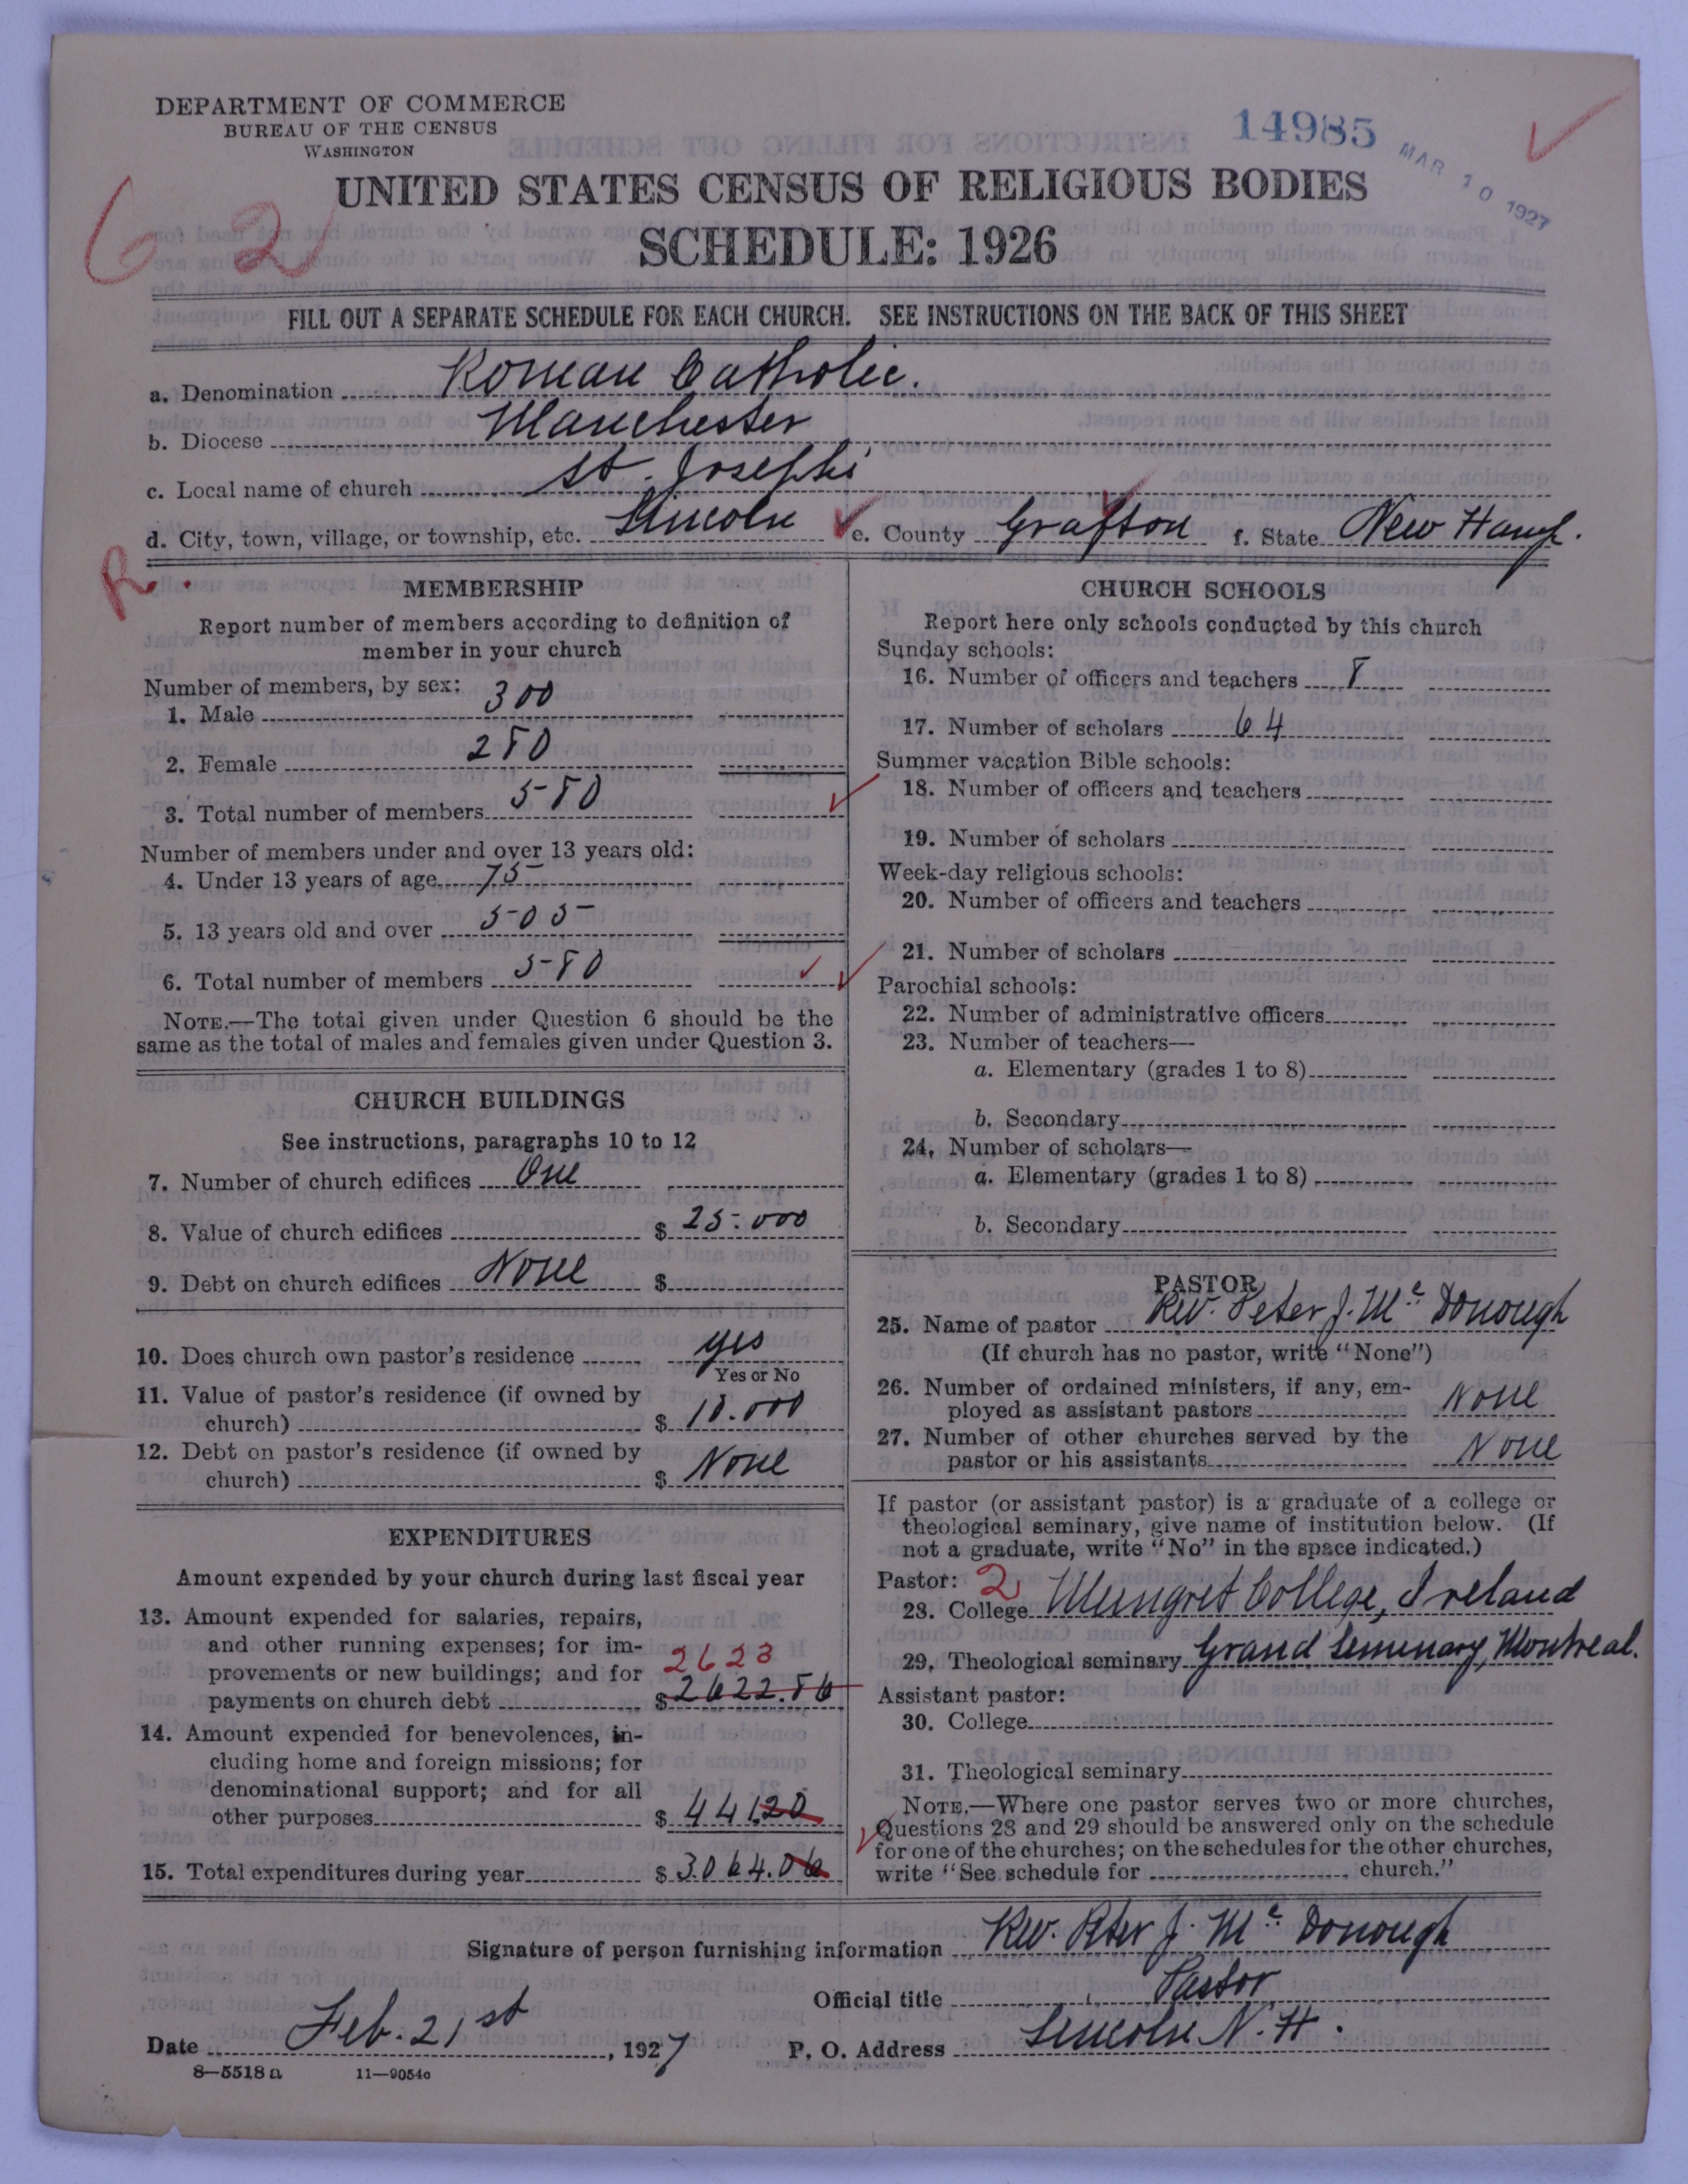 DEPARTMENT OF COMMERCE
BUREAU OF THE CENSUS
WASHINGTON
14985
MAR 10 1927
UNITED STATES CENSUS OF RELIGIOUS BODIES
SCHEDULE: 1926
6 2
FILL OUT A SEPARATE SCHEDULE FOR EACH CHURCH. SEE INSTRUCTIONS ON THE BACK OF THIS SHEET
a. Denomination Roman Catholic.
b. Diocese Manchester
c. Local name of church St. Josephs'
d. City, town, village, or township, etc. Lincoln e. County Grafton f. State New Hamp.
R.
MEMBERSHIP
Report number of members according to definition of
member in your church
Number of members, by sex:
1. Male 300
2. Female 280
3. Total number of members 580
Number of members under and over 13 years old:
4. Under 13 years of age 75
5. 13 years old and over 505
6. Total number of members 580
NOTE.—The total given under Question 6 should be the
same as the total of males and females given under Question 3.
CHURCH BUILDINGS
See instructions, paragraphs 10 to 12
7. Number of church edifices One
8. Value of church edifices $ 25.000
9. Debt on church edifices None $
10. Does church own pastor's residence yes
Yes or No
11. Value of pastor's residence (if owned by
church) $ 10.000
12. Debt on pastor's residence (if owned by
church) $ None
EXPENDITURES
Amount expended by your church during last fiscal year
13. Amount expended for salaries, repairs,
and other running expenses; for im-
provements or new buildings; and for 2623
payments on church debt $ 2622.86
14. Amount expended for benevolences, in-
cluding home and foreign missions; for
denominational support; and for all
other purposes $ 441.20
15. Total expenditures during year $ 3.064.06
CHURCH SCHOOLS
Report here only schools conducted by this church
Sunday schools:
16. Number of officers and teachers 8
17. Number of scholars 64
Summer vacation Bible schools:
18. Number of officers and teachers
19. Number of scholars
Week-day religious schools:
20. Number of officers and teachers
21. Number of scholars
Parochial schools:
22. Number of administrative officers
23. Number of teachers—
a. Elementary (grades 1 to 8)
b. Secondary
24. Number of scholars—
a. Elementary (grades 1 to 8)
b. Secondary
PASTOR
25. Name of pastor Rev. Peter J. Mc Donough
(If church has no pastor, write "None")
26. Number of ordained ministers, if any, em-
ployed as assistant pastors None
27. Number of other churches served by the
pastor or his assistants None
If pastor (or assistant pastor) is a graduate of a college or
theological seminary, give name of institution below. (If
not a graduate, write "No" in the space indicated.)
Pastor: 2
28. College Mungret College, Ireland
29. Theological seminary Grand Seminary, Montreal.
Assistant pastor:
30. College
31. Theological seminary
NOTE.—Where one pastor serves two or more churches,
Questions 28 and 29 should be answered only on the schedule
for one of the churches; on the schedules for the other churches,
write "See schedule for church."
Signature of person furnishing information Rev. Peter J. Mc Donough
Official title Pastor
Date Feb. 21st, 1927 P. O. Address Lincoln N. H.
8—5518 a 11—9054c